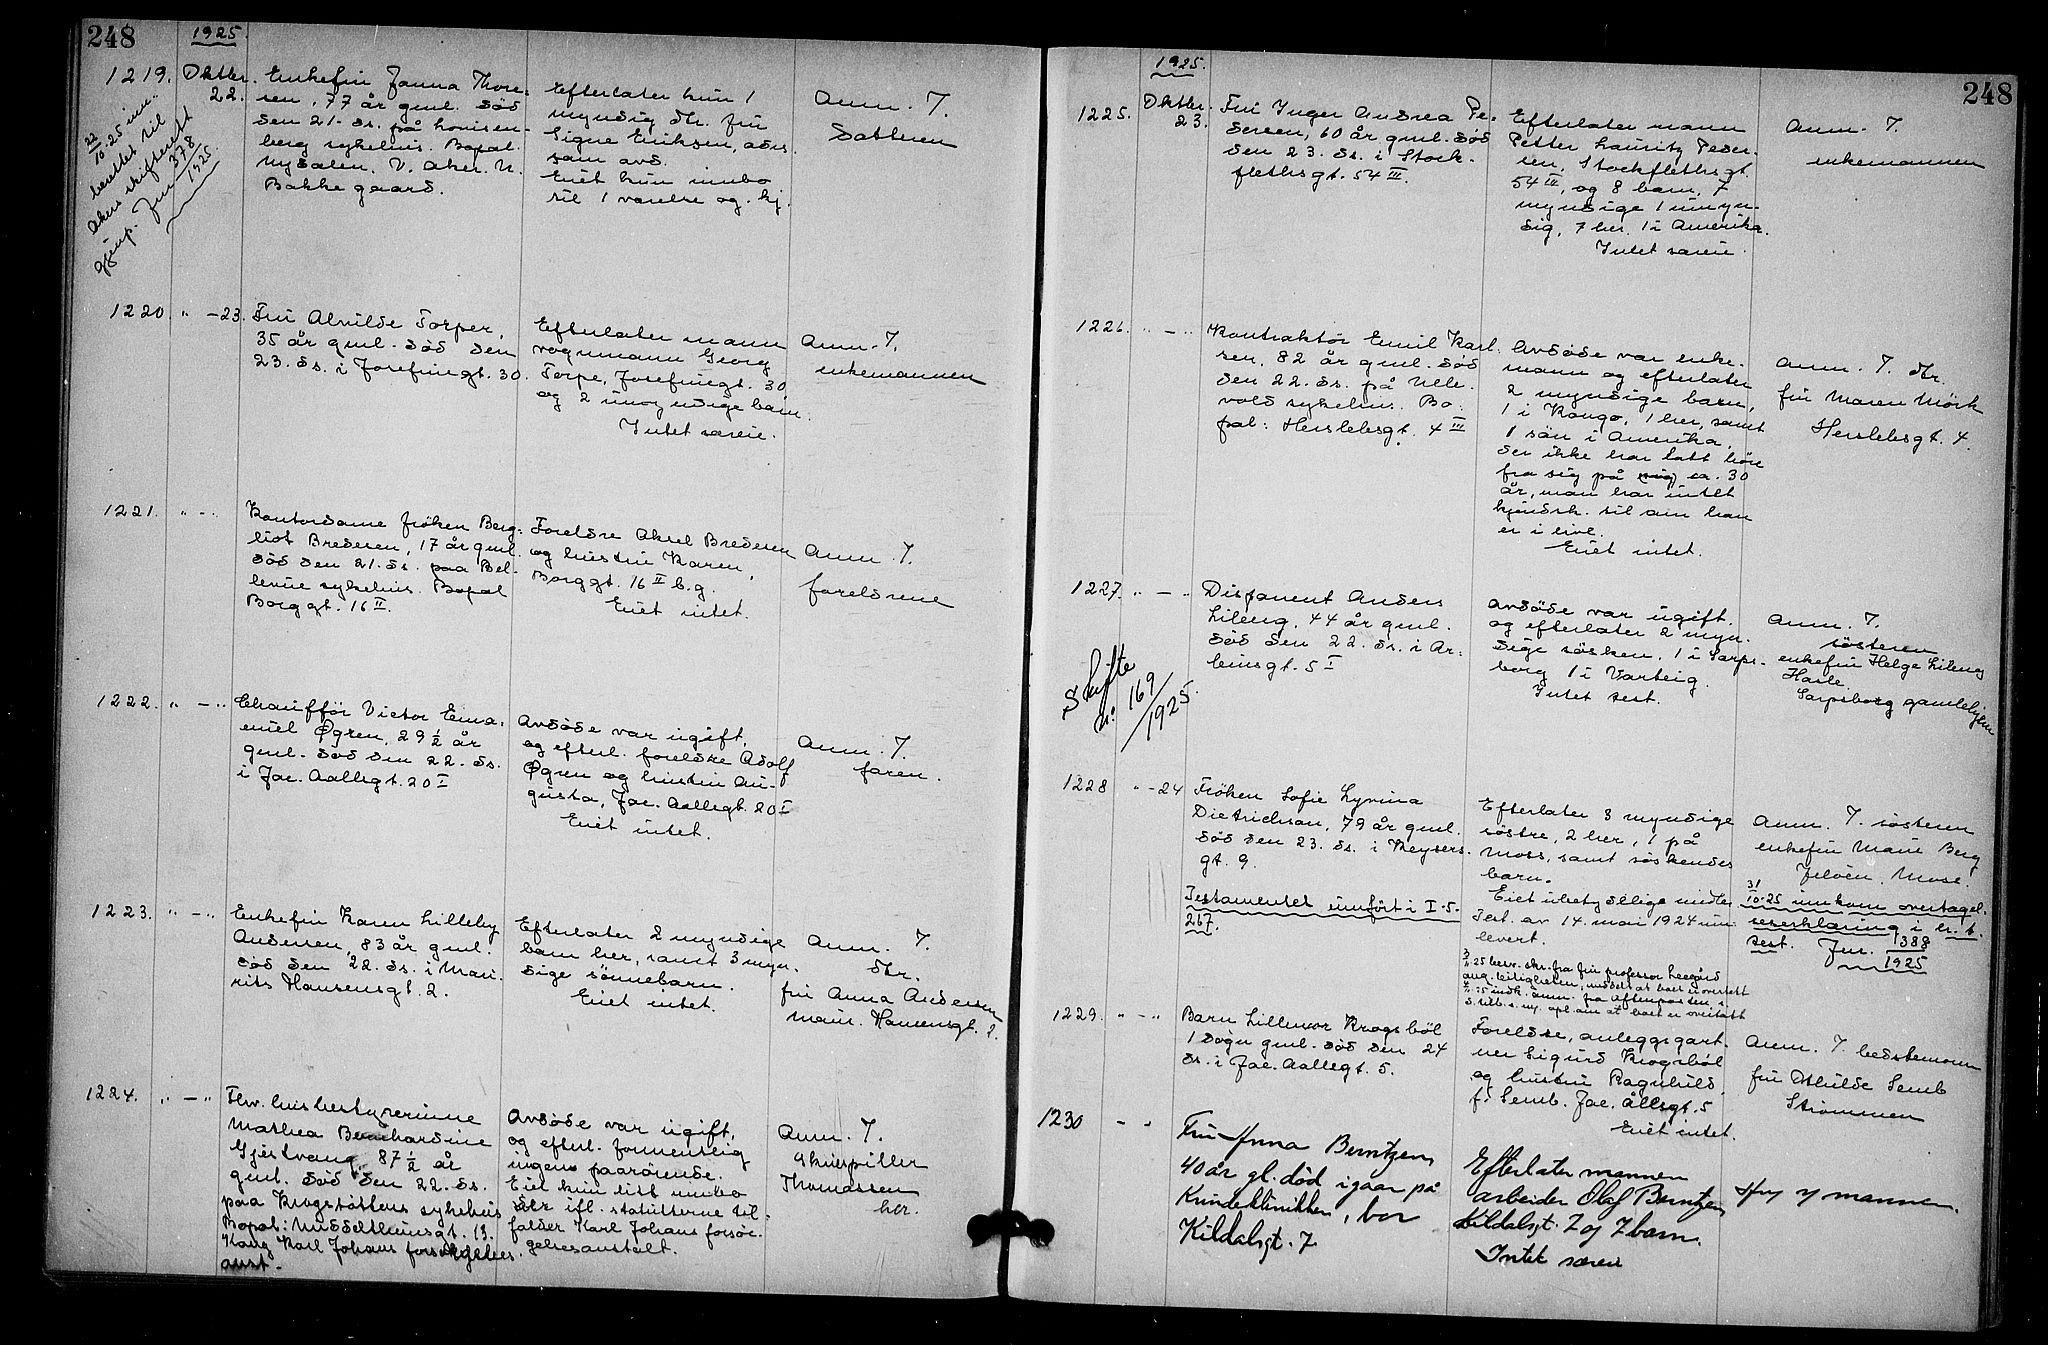 248
1925.
1219. Oktbr. 22.
22/10.25 inn.
berettet til
Akers skifterett
gjenp. Jnr 378/1925.
Enkefru Janna Thore-
sen, 77 år gml. död
den 21. ds. på Lovisen-
berg sykehus. Bopæl
Nydalen. V. Aker. N.
Bakke gaard.
Efterlater hun 1
myndig dtr. fru
Signe Eriksen, adrs.
som avd.
Eiet kun innbo
til 1 værelse og kj.
Anm. 7.
Datteren
1220. " -23.
Fru Alvilde Torper,
35 år gml. död den
23. ds. i Josefinegt. 30.
Efterlater mann
vognmann Georg
Torpe, Josefinegt. 30,
og 2 umyndige barn.
Intet særeie.
Anm. 7.
enkemannen
1221. " - "
Kontordame fröken Berg-
liot Bredesen, 17 år gml.
död den 21. ds. paa Bel-
levue sykehus. Bopæl
Borggt. 16 II.
Foreldre Aksel Bredesen
og hustru Karen,
Borggt. 16 II b.g.
Eiet intet.
Anm. 7.
foreldrene
1222. " - "
Chaufför Victor Ema-
nuel Øgren, 29 1/2 år
gml. död den 22. ds.
i Jac. Aallsgt. 20 I
Avdöde var ugift,
og efterl. foreldre Adolf
Øgren og hustru Au-
gusta, Jac. Aallsgt. 20 I
Eiet intet.
Anm. 7.
faren.
1223. " - "
Enkefru Karen Lilleby
Andersen, 83 år gml.
död den 22. ds. i Mau-
ritz Hansensgt. 2.
Efterlater 2 myndige
barn her, samt 3 myn-
dige sönnebarn.
Eiet intet.
Anm. 7.
dtr.
fru Anna Andersen
Maur. Hansensgt. 2.
1224. " - "
Fhv. husbestyrerinne
Mathea Bernhardine
Gjestvang, 87 1/2 år
gml. död den 22. ds.
paa Krogstöttens sykehus
Bopæl: Middelthunsgt. 13.
Kong Karl Johans forsörgelses
anst.
Avdöde var ugift,
og efterl. formentlig
ingen paarörende.
Eiet kun litt innbo
der ifl. statutterne til-
falder Karl Johans forsör-
gelsesanstalt.
Anm. 7.
Skuespiller
Thomassen
her.
1925.
248
1225. Oktbr. 23.
Fru Inger Andrea Pe-
dersen, 60 år gml. död
den 23. ds. i Stock-
flethsgt. 54 III.
Efterlater mann
Petter Lauritz Peder-
sen, Stockflethsgt.
54 III, og 8 barn, 7
myndige 1 umyn-
dig, 7 her. 1 i Amerika.
Intet særeie.
Anm. 7.
enkemannen
1226. " - "
Kontraktör Emil Karl-
sen, 82 år gml. död
den 22. ds. på Ulle-
vold sykehus. Bo-
pæl: Herslebsgt. 4 III
Avdöde var enke-
mann og efterlater
2 myndige barn,
1 i Kongo, 1 her, samt
1 sön i Amerika,
der ikke har latt höre
fra sig på ca. 30
år, man har intet
kjendsk. til om han
er i live.
Eiet intet.
Anm. 7. dtr.
fru Maren Mörk
Herslebsgt. 4.
1227. " - "
Skifte
nr 169/1925.
Disponent Anders
Lileng, 44 år gml.
död den 22. ds. i Ar-
biensgt. 5 I
Avdöde var ugift.
og efterlater 2 myn-
dige sösken, 1 i Sarps-
borg 1 i Varteig.
Intet test.
Anm. 7.
sösteren
enkefru Helga Lileng
Hasle
Sarpsborg gamlehjem
1228 " -24
Fröken Sofie Lyvina
Dietrichson, 79 år gml.
död den 23. ds. i Keysers-
gt. 9.
Testamentet innfört i I-5-
267.
Efterlater 3 myndige
söstre, 2 her, 1 på
Moss, samt söskendes
barn.
Eiet ubetydelige midler
Test. av 14. mai 1924 inn-
levert.
Anm. 7. sösteren
enkefru Marie Berg
Jelöen, Moss.
31/10.25 innkom overtagel-
seserklæring i hr. t.
test. Jnr. 1388/1925
1229. " - "
Barn Lillemor Krogsböl
1 dögn gml. död den 24
ds. i Jac. Aallsgt. 5.
Foreldre, anleggsgart-
ner Sigurd Krogsböl
og hustru Ragnhild,
f. Semb. Jac. Ållsgt. 5
Eiet intet.
Anm. 7. bedstemoren
fru Mhilde Semb
Strömmen
1230 " - "
Fru Anna Berntzen,
40 år gl. död igaar på
Kvindeklinikken, bor
Kildalsgt. 7
Efterlater mannen
arbeider Olaf Berntzen
Kildalsgt. 7 og 7 barn.
Intet særeie
Anm 7 mannen.